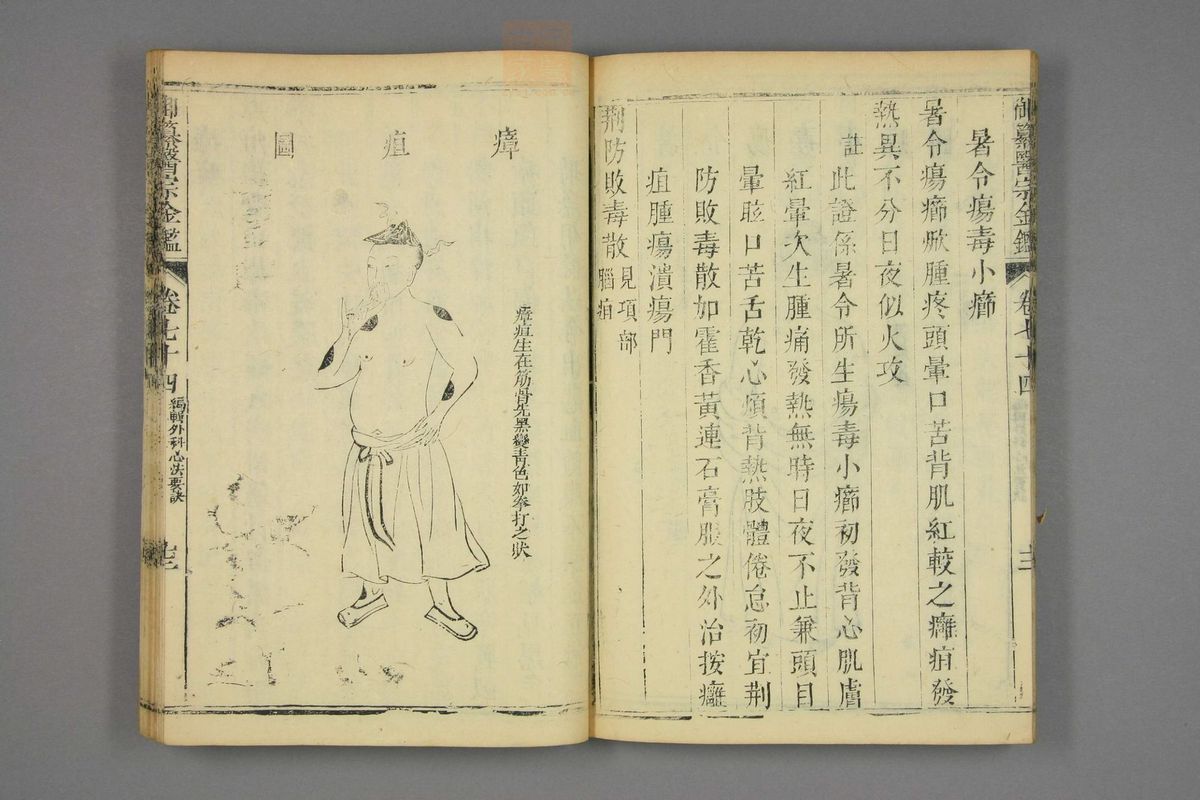 御纂醫宗金鑑
卷七十四
暑令瘍毒小癤
暑令瘍癤焮腫疼頭暈口苦背肌紅較之癰疽發
熱異不分日夜似火攻
註 此證係暑令所生瘍毒小癤初發背心肌膚
紅暈次生腫痛發熱無時日夜不止兼頭目
暈眩口苦舌乾心煩背熱肢體倦怠初宜荊
防敗毒散加霍香黃連石膏服之外治按癰
疽腫瘍潰瘍門
荊防敗毒散 見項部
腦疽
瘴疽圖
瘴疽生在筋骨先黑變青色如拳打之狀
御纂醫宗金鑑
卷七十四 編輯外科心法要訣